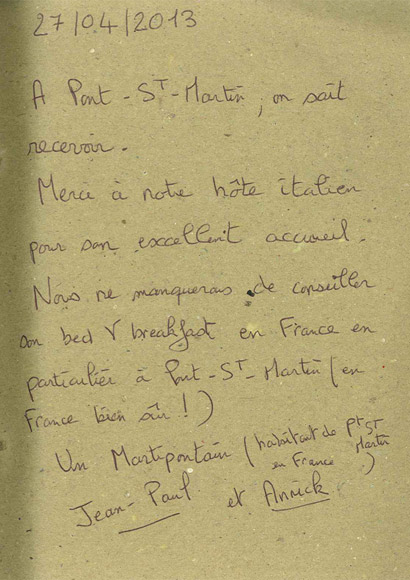 27/04/2013
A Pont-ST-Martin, on sait
recevoir.
Merci à notre hôte italien
pour son excellent accueil.
Nous ne manquerons de conseiller
son bed & breakfast en France en
particulier à Pont-ST-Martin (en
France bien sûr !)
Un Martipontain (habitant de Pt ST
Martin
en France )
Jean-Paul et Annick